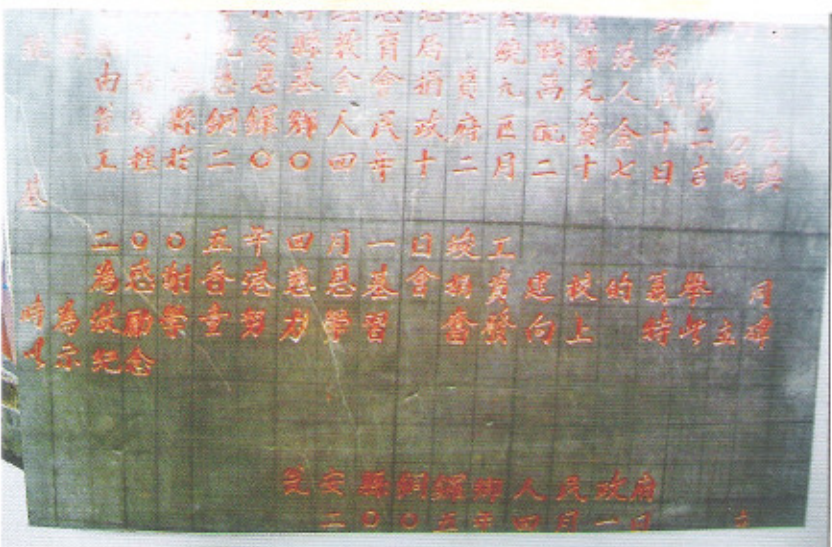 由香港慈恩基金會捐資九萬元人民幣
瓮安縣銅鑼鄉人民政府匹配資金十二萬元
工程於二〇〇四年十二月二十七日吉時奠
基
二〇〇五年四月一日竣工
為感謝香港慈恩基會捐資建校的義舉 同
時為激勵學童努力學習奮發向上特此立碑
以示紀念
瓮安縣銅鑼鄉人民政府
二〇〇五年四月一日 立